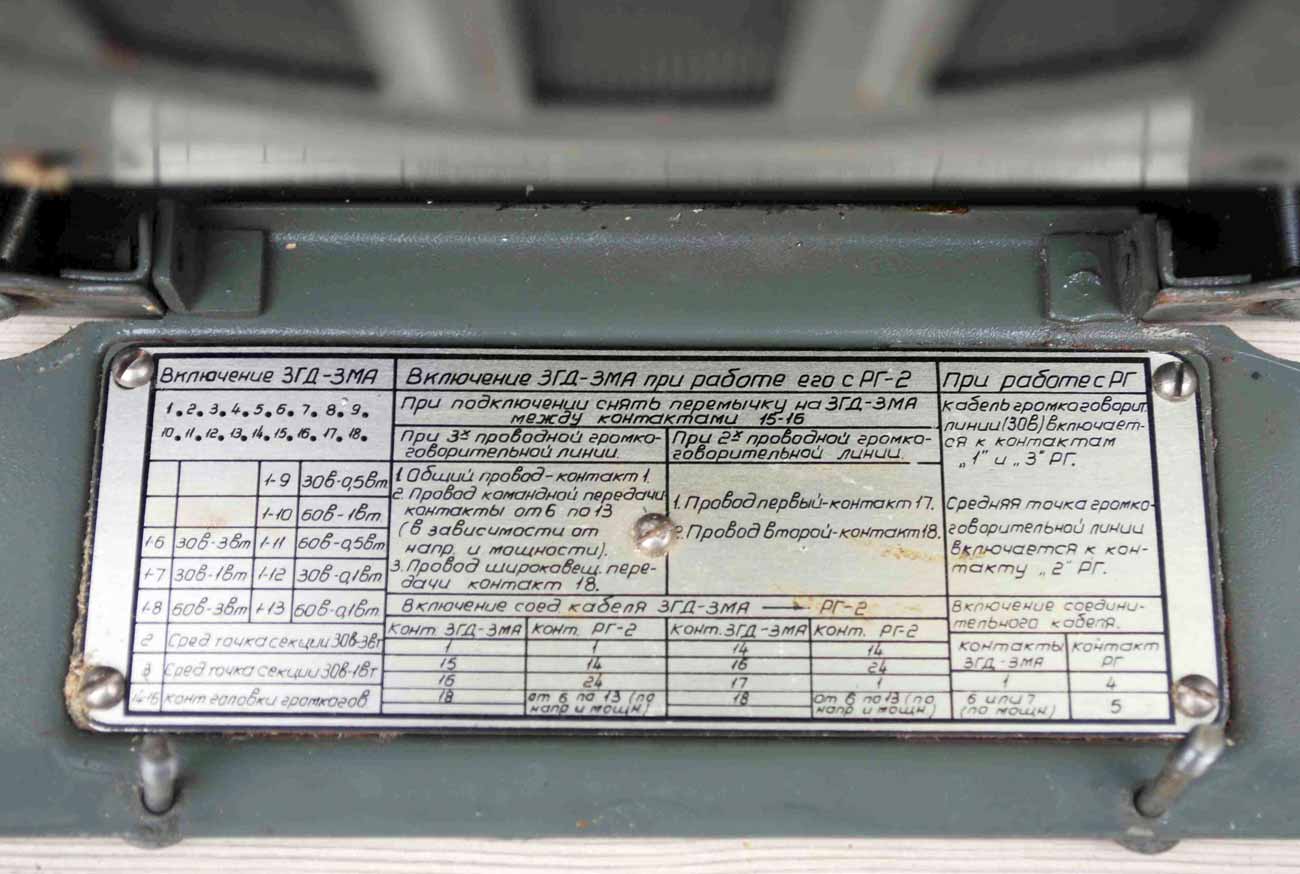 Включение 3ГД-3МА
1. 2. 3. 4. 5. 6. 7. 8. 9.
10. 11. 12. 13. 14. 15. 16. 17. 18.
1-9 30в-0,5вт
1-10 60в-1вт
1-6 30в-3вт 1-11 60в-0,5вт
1-7 30в-1вт 1-12 30в-0,1вт
1-8 60в-3вт 1-13 60в-0,1вт
2 Сред точка секции 30в-3вт
3 Сред точка секции 30в-1вт
14-15 конт головки громкогов
Включение 3ГД-3МА при работе его с РГ-2
При подключении снять перемычку на 3ГД-3МА
между контактами 15-16
При 3х проводной громко-
говорительной линии.
1. Общий провод-контакт 1.
2. Провод командной передачи
контакты от 6 по 13
(в зависимости от
напр и мощности).
3. Провод широковещ. пере-
дачи контакт 18.
При 2х проводной громко-
говорительной линии.
1. Провод первый-контакт 17.
2. Провод второй-контакт 18.
Включение соед кабеля 3ГД-3МА → РГ-2
Конт 3ГД-3МА Конт. РГ-2 Конт. 3ГД-3МА Конт. РГ-2
1 1 14 14
15 14 16 24
16 24 17 1
18 от 6 по 13 (по 18 от 6 по 13 (по
напр и мощн) напр и мощн)
При работе с РГ
Кабель громкоговорит.
линии (30в) включает-
ся к контактам
„1" и „3" РГ.
Средняя точка громко-
говорительной линии
включается к кон-
такту „2" РГ.
Включение соедини-
тельного кабеля.
контакты контакт
3ГД-3МА РГ
1 4
6 или 7 5
(по мощн)